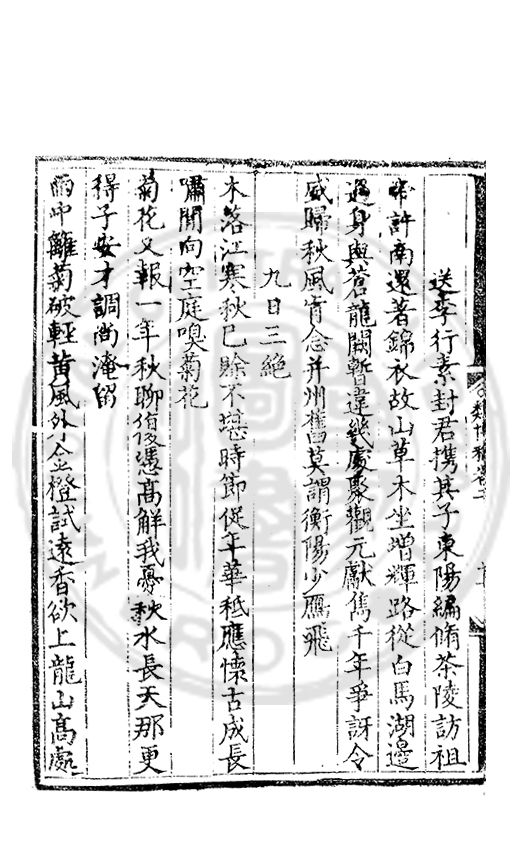 送李行素封君携其子東陽編脩茶陵訪祖
帝許南還著錦衣故山草木坐增輝路從白馬湖邊
過身與蒼龍闕暫違幾處聚觀元獻雋千年爭訝令
威歸秋風肯念并州舊莫謂衡陽少鴈飛
九日三絶
木落江寒秋已賒不堪時節促年華秪應懷古成長
嘯閒向空庭嗅菊花
菊花又報一年秋聊復憑高解我憂秋水長天那更
得子安才調尚淹留
雨中籬菊破輕黄風外金橙試遠香欲上龍山高處
類博稿卷二